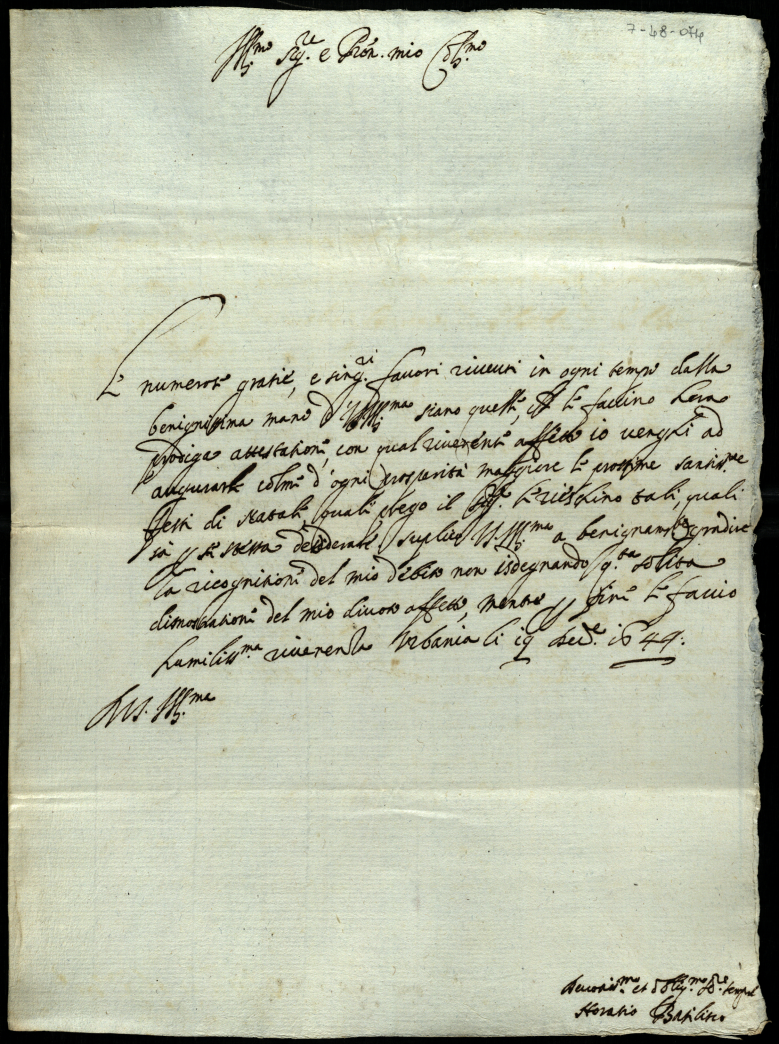 7-48-074
Ill.mo Sig.re e Pron. mio Coll.mo
Le numerose gratie, e sing.ri favori riceuti in ogni tempo dalla
benignissima mano d'V.S. Ill.ma siano quelle, che le faccino hora
prodiga attestatione, con qual riverente affetto io venghi ad
augurarle colme d'ogni prosperità maggiore le prossime santiss.me
feste di Natale quali prego il Sig.re le rieschino tali, quali
sà p se stessa desiderarle suplico V.S. Ill.ma a benignam.te gradire
la ricognitione del mio debito non isdegnando q.ta solita
dimostratione del mio divoto affetto, mentre p fine le faccio
humiliss.ma riverenza Urbania li 19 Dec.e 1649.
Di V.S. Ill.ma
Devotiss.mo et Obblig.mo S.re
Horatio Basilisco